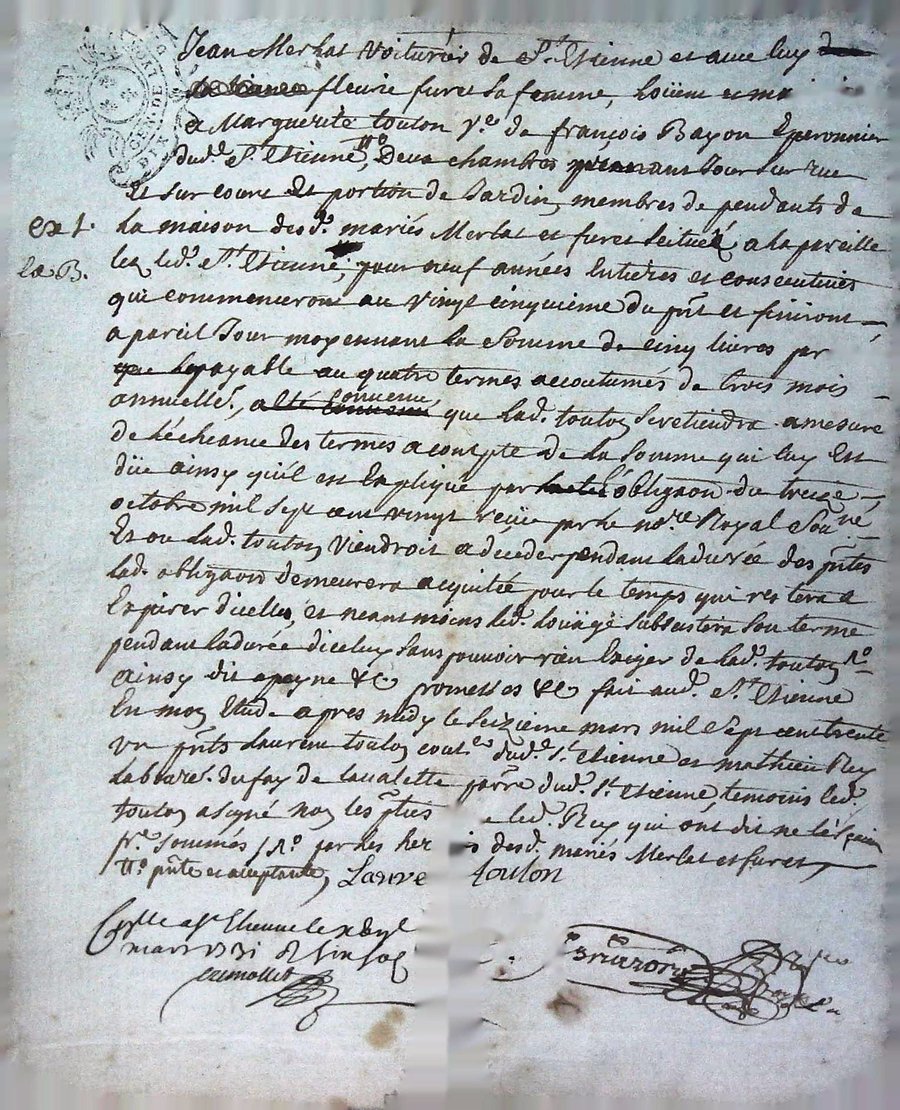 Jean Merlat Voiturier de St. Etienne et avec luy
fleurie furet sa femme, loüent
a Marguerite toulon ve. de françois Bayon Eperonnier
dud. St. Etienne, Deux chambres prenant Jour sur rue
et sur cour et portion de Jardin, membres dependants de
ext. la maison desd. mariés Merlat et furet scituée a la pareille
led. St. Etienne, pour neuf années Entieres et consecutives
qui commenceront au vingt cinquieme du pñt et finiront
a pareil Jour moyennant la somme de cinq livres par
payable au quatre termes accoutumés de trois mois
annuelle., convenu que lad. toulon se retiendra a mesure
de l'écheance des termes a compte de la somme qui luy Est
düe ainsy qu'il est Expliqué par obligaon du treize
octobre mil sept cent vingt reçüe par le nore Royal
Et ou lad. toulon viendroit a deceder pendant la durée des pñtes
lad. obligaon demeurera acquitée pour le temps qui restera a
Expirer dicelles, et neanmoins led. loüage subsistera son terme
pendant la durée diceluy sans pouvoir rien Exiger de lad. toulon
ainsy dit a peyne &c promettes &c fait aud. St. Etienne
En mon Etude apres midy le seizieme mars mil sept cent trente
un pñts Laurent toulon dud. St. Etienne et mathieu Rey
labour. du fay de lavalette parre dud. St. Etienne, temoins led.
toulon a signé non les pties led. Rey qui ont dit ne sçavoir
sommés par les desd. mariés Merlat et furet
pñte et acceptante, Laure toulon
Cllé a St. Etienne le
mars 1731